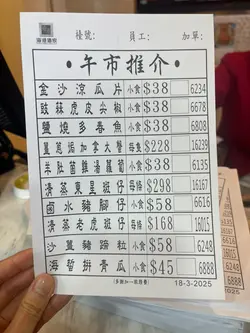 檯號: 員工: 加單:
午市推介
金沙涼瓜片 小食$38 6234
豉蘇虎皮尖椒 小食$38 6678
鹽燒多春魚 小食$38 6808
薑蔥焗加拿大蟹 每隻$228 16239
羊肚菌雞湯蘿蔔 小食$38 6135
清蒸東星斑仔 每條$298 16167
鹵水豬腳仔 小食$58 6616
清蒸老虎斑仔 每條$168 16015
沙薑豬蹄粒 小食$58 6248
海蜇拼青瓜 小食$45 6888
(多謝加一服務費)
18-3-2025